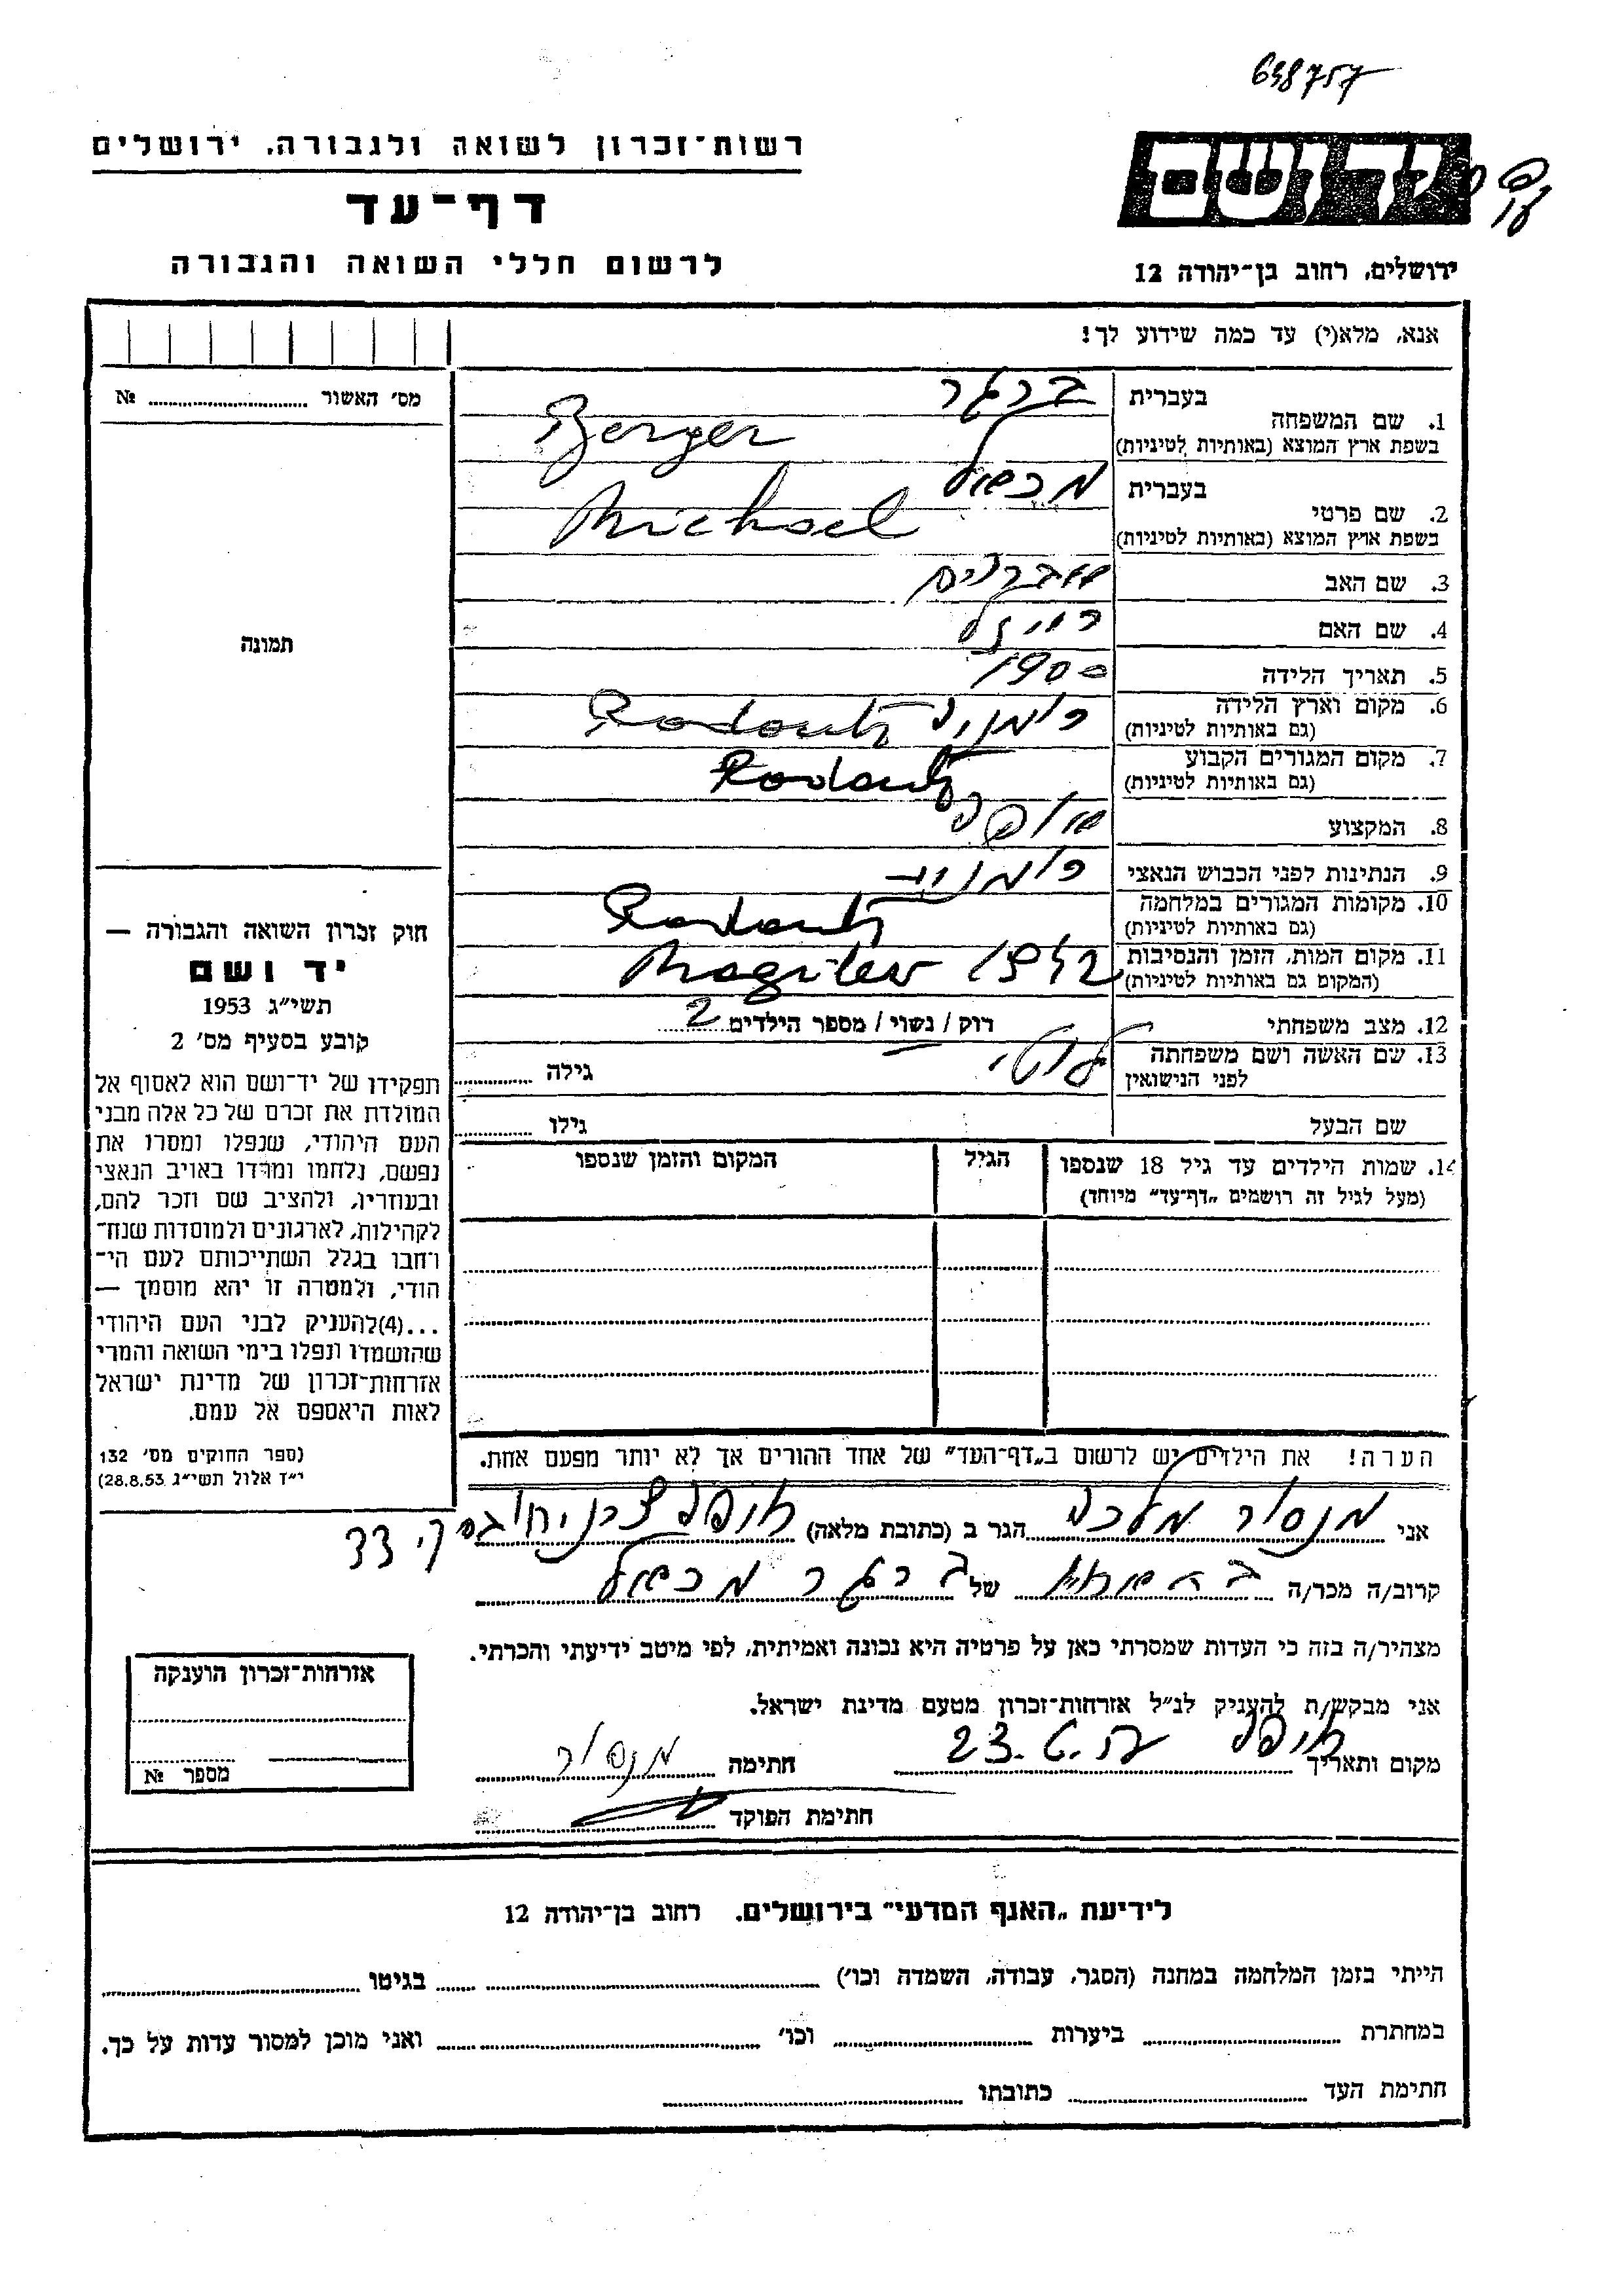 638757
רשות־זכרון לשואה ולגבורה, ירושלים
דף־עד
לרשום חללי השואה והגבורה
יד ושם
ירושלים, רחוב בן־יהודה 12
אנא, מלא(י) עד כמה שידוע לך!
מס' האשור № 
תמונה
1. שם המשפחה
בעברית ברגר
בשפת ארץ המוצא (באותיות לטיניות) Berger
2. שם פרטי
בעברית מכאל
בשפת ארץ המוצא (באותיות לטיניות) Michael
3. שם האב אברהם
4. שם האם רויזל
5. תאריך הלידה 1900
6. מקום וארץ הלידה
(גם באותיות לטיניות) רומניה Radautz
7. מקום המגורים הקבוע
(גם באותיות לטיניות) Radautz
8. המקצוע אופה
9. הנתינות לפני הכבוש הנאצי רומנית
10. מקומות המגורים במלחמה
(גם באותיות לטיניות) Radautz
11. מקום המות, הזמן והנסיבות
(המקום גם באותיות לטיניות) Mogilev 1942
12. מצב משפחתי רוק / נשוי / מספר הילדים 2
13. שם האשה ושם משפחתה
לפני הנישואין לוטי גילה
שם הבעל גילו
14. שמות הילדים עד גיל 18 שנספו
(מעל לגיל זה רושמים „דף־עד" מיוחד)
הגיל
המקום והזמן שנספו
חוק זכרון השואה והגבורה —
יד ושם
תשי"ג 1953
קובע בסעיף מס' 2
תפקידו של יד־ושם הוא לאסוף אל
המולדת את זכרם של כל אלה מבני
העם היהודי, שנפלו ומסרו את
נפשם, נלחמו ומרדו באויב הנאצי
ובעוזריו, ולהציב שם וזכר להם,
לקהילות, לארגונים ולמוסדות שנח־
רחבו בגלל השתייכותם לעם הי־
הודי, ולמטרה זו יהא מוסמך —
...(4)להעניק לבני העם היהודי
שהושמדו ונפלו בימי השואה והמרי
אזרחות־זכרון של מדינת ישראל
לאות היאספם אל עמם.
(ספר החוקים מס' 132
י"ד אלול תשי"ג 28.8.53)
הערה! את הילדים יש לרשום ב„דף־העד" של אחד ההורים אך לא יותר מפעם אחת.
אני מנסור מלכה הגר ב (כתובת מלאה) חיפה
קרוב/ה מכר/ה של ברגר מכאל
מצהיר/ה בזה כי העדות שמסרתי כאן על פרטיה היא נכונה ואמיתית, לפי מיטב ידיעתי והכרתי.
אני מבקש/ת להעניק לנ"ל אזרחות־זכרון מטעם מדינת ישראל.
מקום ותאריך חיפה 23.6.57 חתימה מנסור
חתימת הפוקד
אזרחות־זכרון הוענקה
מספר №
לידיעת „האנף המדעי" בירושלים. רחוב בן־יהודה 12
הייתי בזמן המלחמה במחנה (הסגר, עבודה, השמדה וכו') בגיטו
במחתרת ביערות וכו' ואני מוכן למסור עדות על כך.
חתימת העד כתובתו